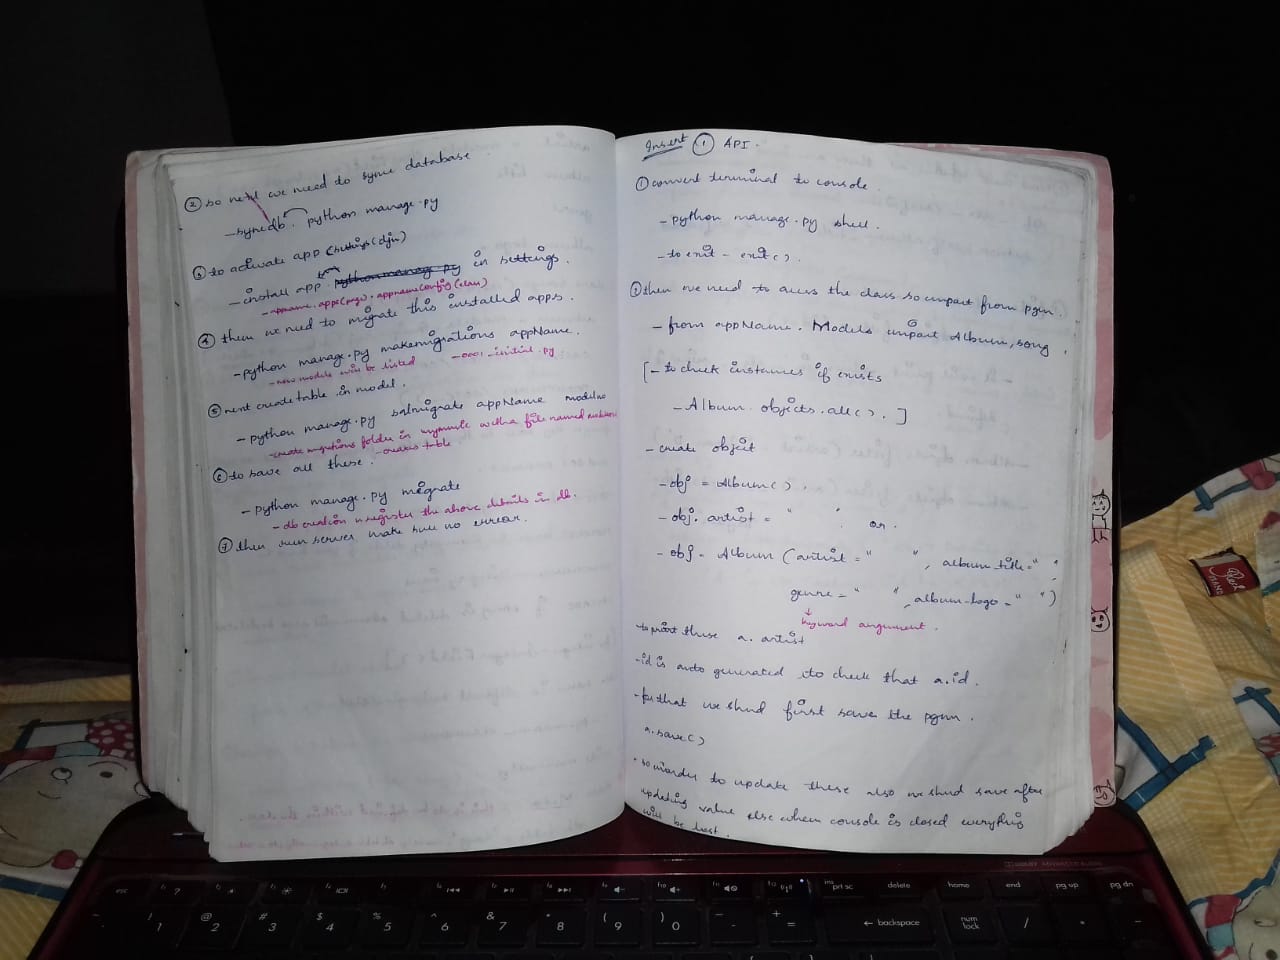 ② so next we need to sync database
- syncdb. python manage.py
③ to activate app (settings(djn)
- install app python manage py in settings.
- appname.apps(page).appnameconfig(class)
④ then we need to migrate this installed apps.
- python manage.py makemigrations appName.
- new models will be listed - 0001-initial.py
⑤ next create table in model.
- python manage.py sqlmigrate appName
- create migrations folder in with a file named
- creates table
⑥ to save all these.
- python manage.py migrate
- db creation register the above details in db.
⑦ then run server make sure no error.
Insert ① API.
① convert terminal to console.
- python manage.py shell.
- to exit - exit().
② then we need to access the class so import from pgm.
- from appName. Models import Album, song.
[ - to check instances if exists
- Album. objects.all(). ]
- create object
- obj = Album().
- obj. artist = " " or.
- obj = Album (artist = " ", album_title = " ",
genre = " ", album-logo = " ")
↓
keyword argument.
- to print these a. artist
- id is auto generated to check that a.id.
- for that we shud first save the pgm.
a.save()
- so inorder to update these also we shud save after
updating value else when console is closed everything
will be lost.
esc
prt sc
delete
home
end
pg up
pg dn
! 1
@ 2
# 3
$ 4
% 5
^ 6
& 7
* 8
( 9
) 0
- -
+ =
← backspace
num lock
/
*
-